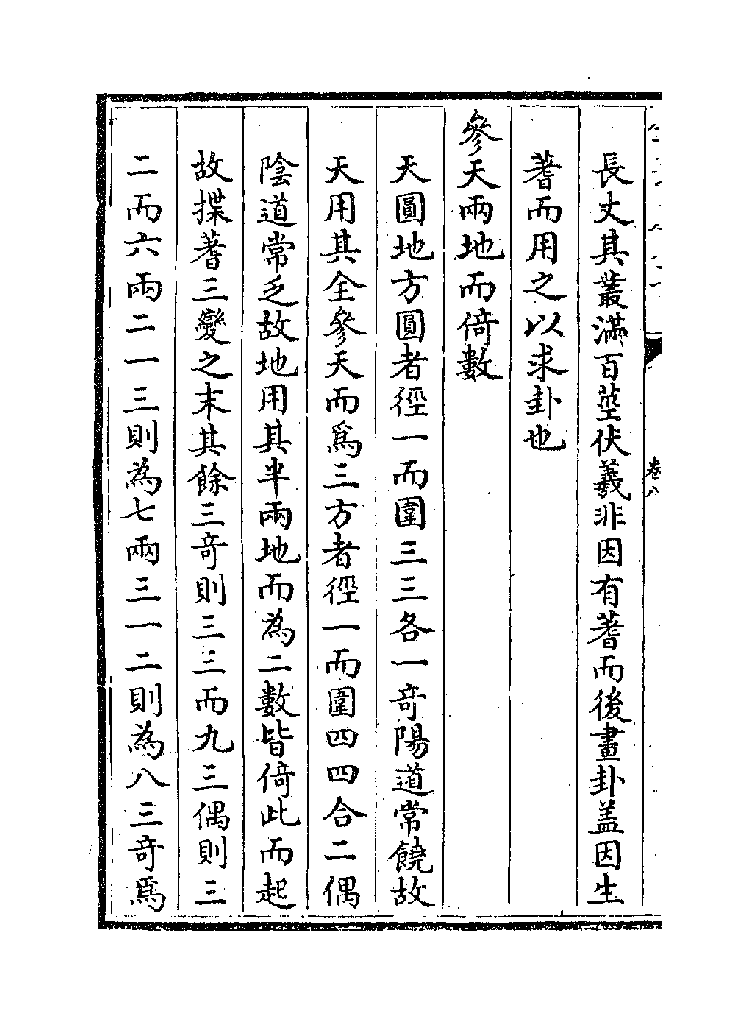 長丈其叢滿百莖伏羲非因有蓍而後畫卦盖因生
蓍而用之以求卦也
參天兩地而倚數
天圓地方圓者徑一而圍三三各一竒陽道常饒故
天用其全參天而爲三方者徑一而圍四四合二偶
陰道常乏故地用其半兩地而為二數皆倚此而起
故揲蓍三變之末其餘三竒則三三而九三偶則三
二而六兩二一三則為七兩三一二則為八三竒爲
卷八